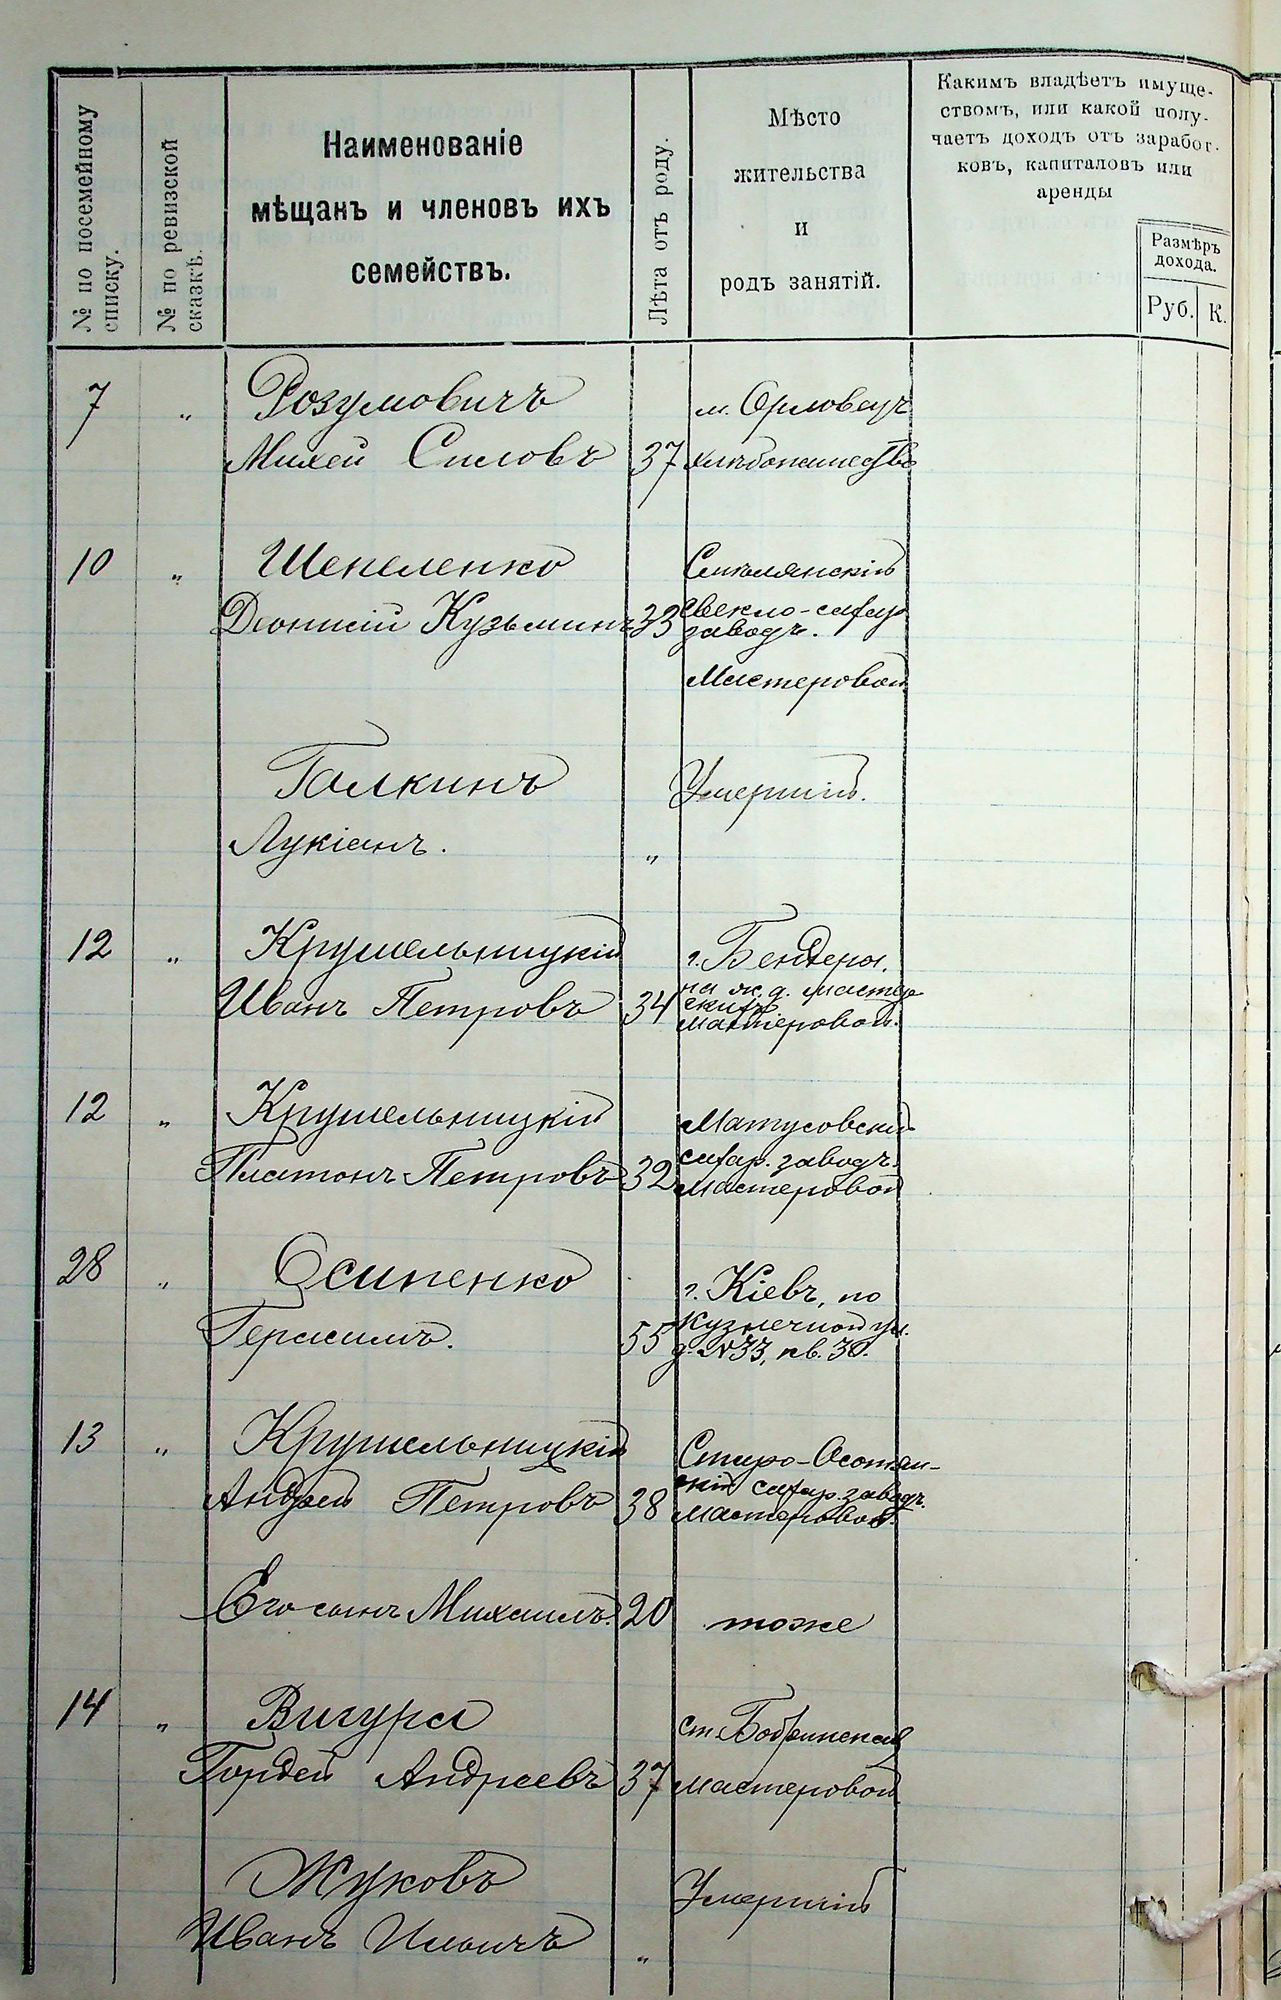 № по посемейному
списку.
№ по ревизской
сказкѣ.
Наименованіе
мѣщанъ и членовъ ихъ
семействъ.
Лѣта отъ роду.
Мѣсто
жительства
и
родъ занятій.
Какимъ владѣетъ имуще-
ствомъ, или какой полу-
чаетъ доходъ отъ заработ-
ковъ, капиталовъ или
аренды
Размѣръ
дохода.
Руб. К.
7 „ Розумовичъ м. Орловецъ
Михей Силовъ 37 хлѣбопашество
10 „ Шепеленко Смѣлянскій
Діонисій Кузьминъ 33 свекло-сахар
заводъ.
Мастеровой
Галкинъ Умершій.
Лукіанъ. „
12 „ Крушельницкій г. Бендеры.
Иванъ Петровъ 34 на ж. д. мастер
скихъ
мастеровой.
12 „ Крушельницкій Матусовскій
Платонъ Петровъ 32 сахар. заводъ.
мастеровой
28 „ Осипенко г. Кіевъ, по
Герасимъ. 55 Кузнечной ул.
д. №33, кв. 30.
13 „ Крушельницкій Старо-Осотян-
Андрей Петровъ 38 скій сахар. заводъ.
мастеровой.
Его сынъ Михаилъ. 20 тоже
14 „ Вигура ст. Бобринская
Гордей Андреевъ 37 мастеровой
Жуковъ Умершій
Иванъ Ильичъ „